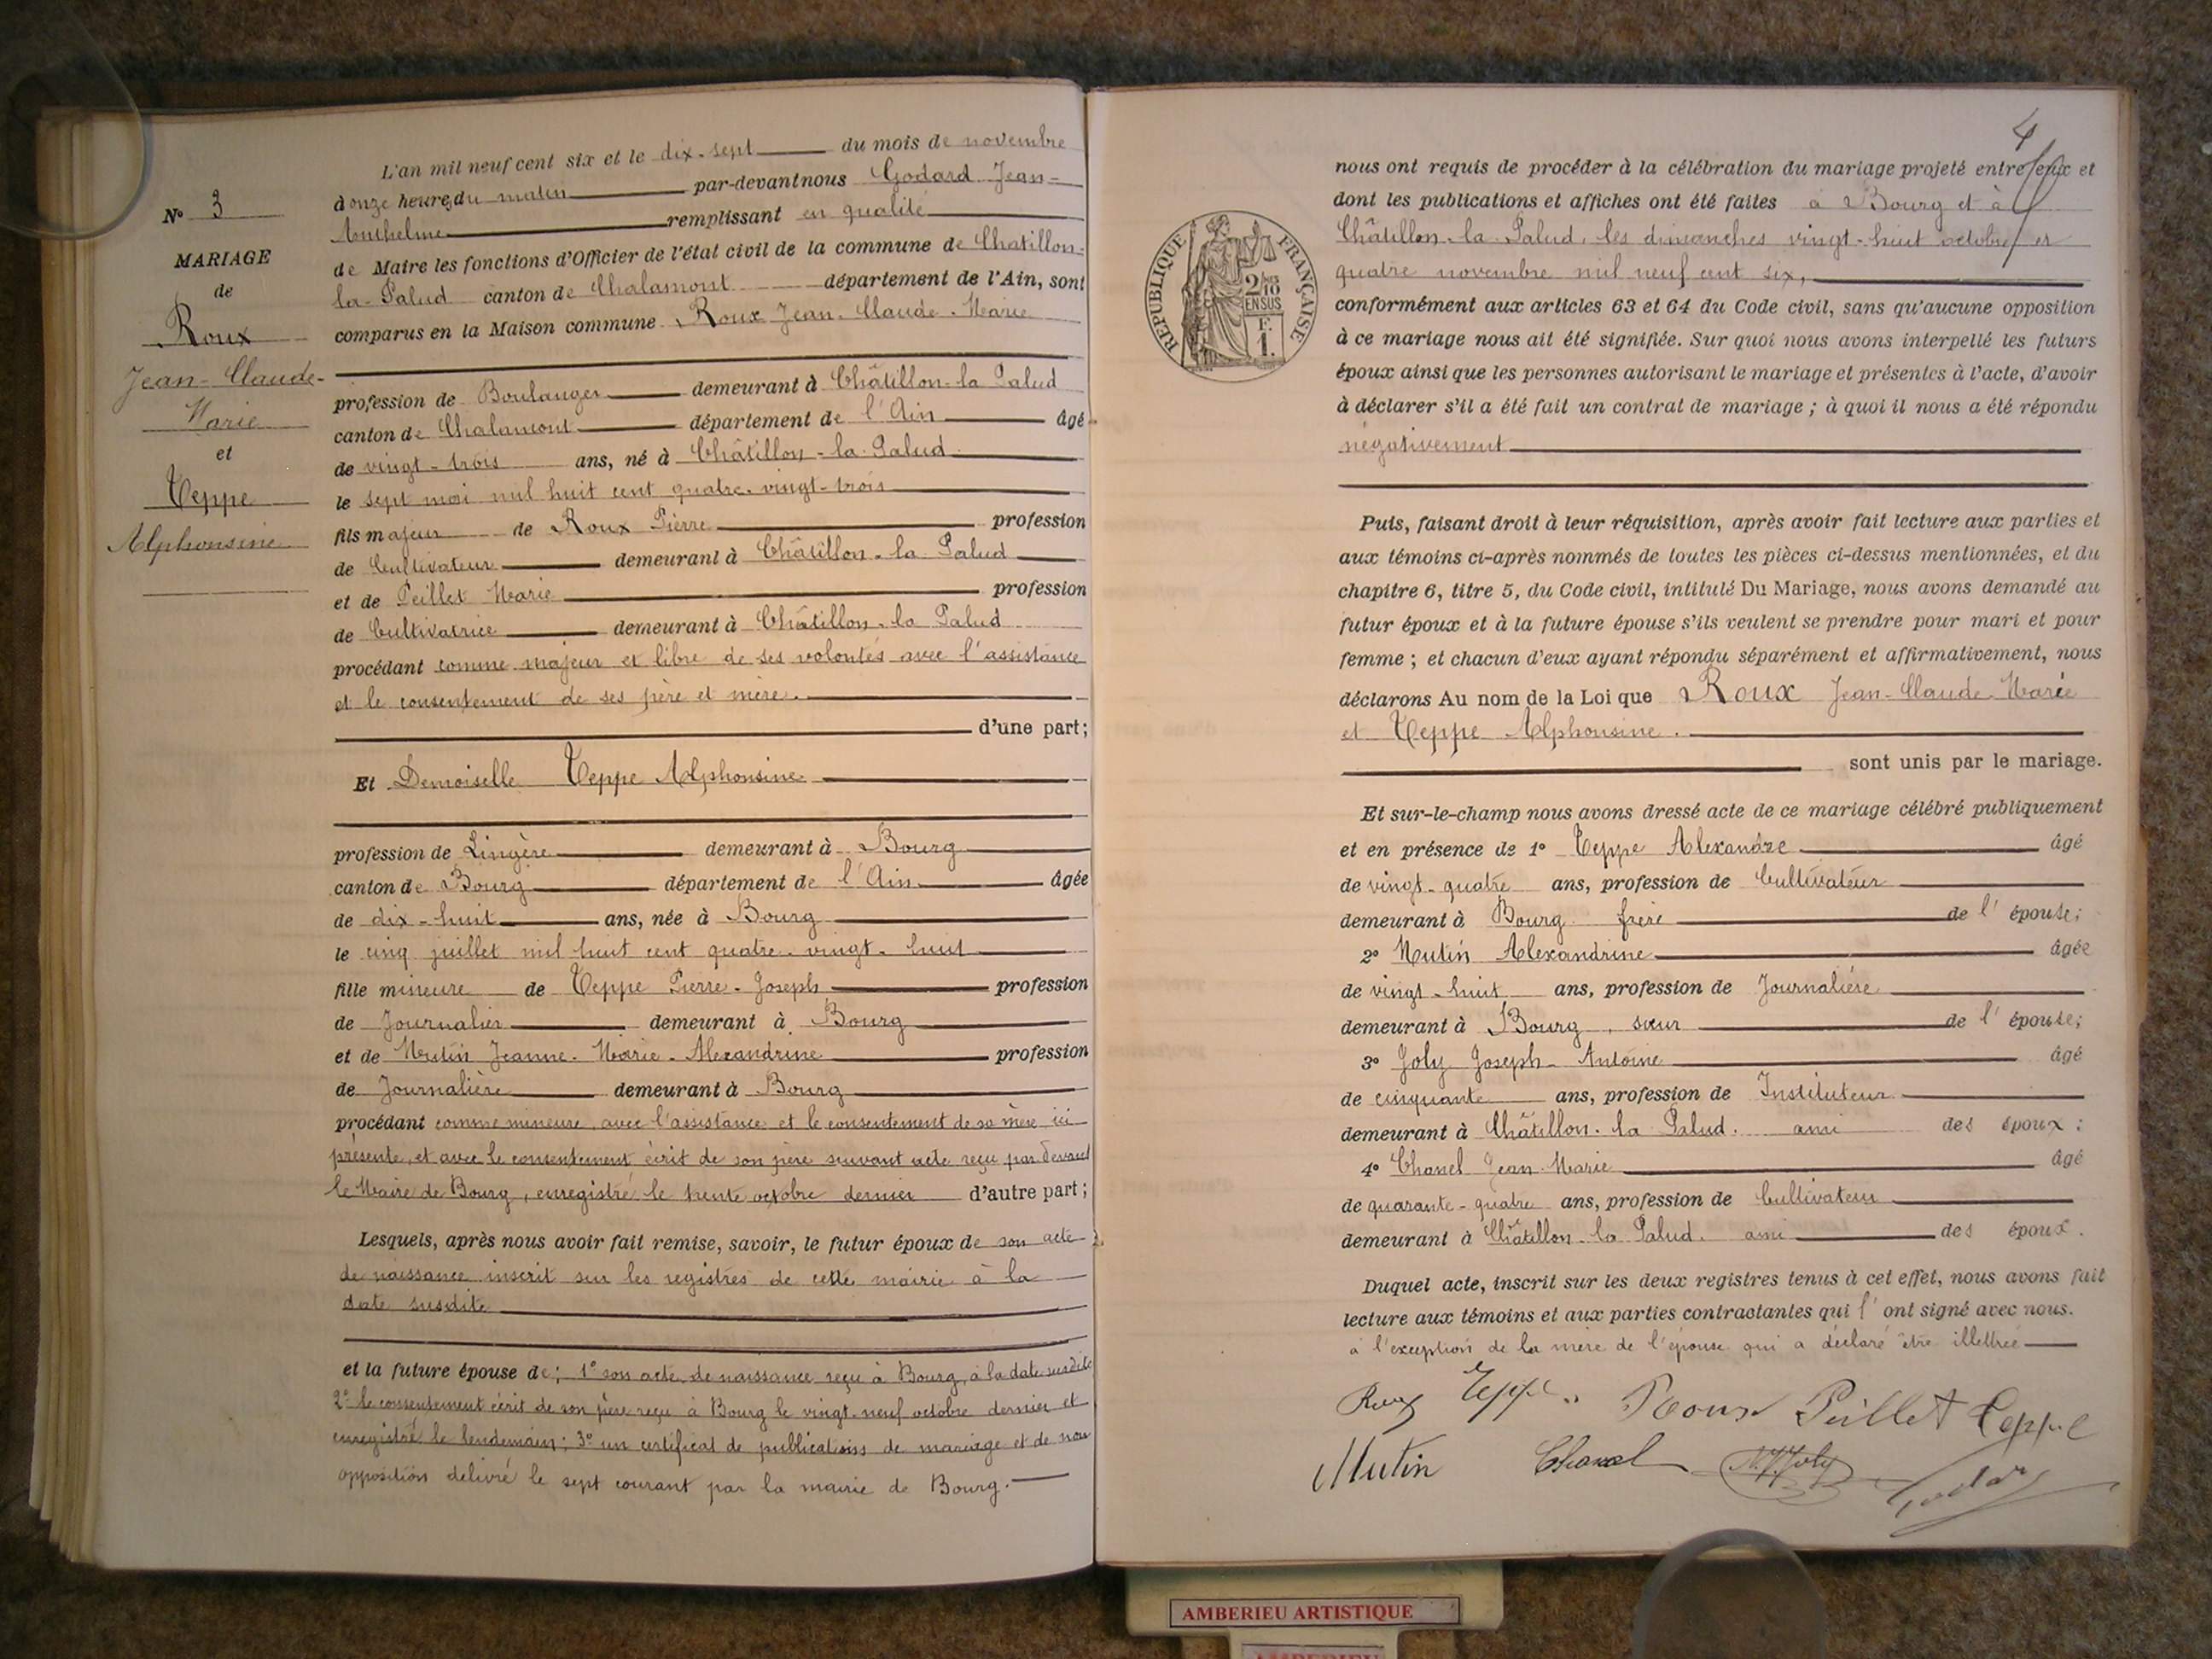 N° 3
MARIAGE
de
Roux
Jean-Claude-
Marie
et
Teppe
Alphonsine
L'an mil neuf cent six et le dix-sept du mois de novembre
à onze heures du matin par-devant nous Godard Jean-
Anthelme remplissant en qualité
de Maire les fonctions d'Officier de l'état civil de la commune de Chatillon-
la-Palud canton de Chalamont département de l'Ain, sont
comparus en la Maison commune Roux Jean-Claude-Marie
profession de Boulanger demeurant à Châtillon-la Palud
canton de Chalamont département de l'Ain âgé
de vingt-trois ans, né à Châtillon-la-Palud
le sept mai mil huit cent quatre-vingt-trois
fils majeur de Roux Pierre profession
de Cultivateur demeurant à Châtillon-la Palud
et de Peillet Marie profession
de Cultivatrice demeurant à Châtillon-la Palud
procédant comme majeur et libre de ses volontés avec l'assistance
et le consentement de ses père et mère.
d'une part;
Et Demoiselle Teppe Alphonsine
profession de Lingère demeurant à Bourg
canton de Bourg département de l'Ain âgée
de dix-huit ans, née à Bourg
le cinq juillet mil huit cent quatre-vingt-huit
fille mineure de Teppe Pierre-Joseph profession
de Journalier demeurant à Bourg
et de Mutin Jeanne-Marie-Alexandrine profession
de Journalière demeurant à Bourg
procédant comme mineure, avec l'assistance et le consentement de sa mère ici
présente, et avec le consentement écrit de son père suivant acte reçu par devant
le Maire de Bourg, enregistré le trente octobre dernier d'autre part;
Lesquels, après nous avoir fait remise, savoir, le futur époux de son acte
de naissance inscrit sur les registres de cette mairie à la
date susdite
et la future épouse de; 1° son acte de naissance reçu à Bourg, à la date susdite
2° le consentement écrit de son père reçu à Bourg le vingt-neuf octobre dernier et
enregistré le lendemain; 3° un certificat de publications de mariage et de non
opposition délivré le sept courant par la mairie de Bourg.
4
nous ont requis de procéder à la célébration du mariage projeté entre eux et
dont les publications et affiches ont été faites à Bourg et à
Châtillon-la-Palud, les dimanches vingt-huit octobre et
quatre novembre mil neuf cent six,
RÉPUBLIQUE FRANÇAISE
2/10
EN SUS
F.
1.
conformément aux articles 63 et 64 du Code civil, sans qu'aucune opposition
à ce mariage nous ait été signifiée. Sur quoi nous avons interpellé les futurs
époux ainsi que les personnes autorisant le mariage et présentes à l'acte, d'avoir
à déclarer s'il a été fait un contrat de mariage; à quoi il nous a été répondu
négativement
Puis, faisant droit à leur réquisition, après avoir fait lecture aux parties et
aux témoins ci-après nommés de toutes les pièces ci-dessus mentionnées, et du
chapitre 6, titre 5, du Code civil, intitulé Du Mariage, nous avons demandé au
futur époux et à la future épouse s'ils veulent se prendre pour mari et pour
femme; et chacun d'eux ayant répondu séparément et affirmativement, nous
déclarons Au nom de la Loi que Roux Jean-Claude-Marie
et Teppe Alphonsine.
sont unis par le mariage.
Et sur-le-champ nous avons dressé acte de ce mariage célébré publiquement
et en présence de 1° Teppe Alexandre âgé
de vingt-quatre ans, profession de Cultivateur
demeurant à Bourg frère de l'épouse;
2° Mutin Alexandrine âgée
de vingt-huit ans, profession de Journalière
demeurant à Bourg, sœur de l'épouse;
3° Joly Joseph-Antoine âgé
de cinquante ans, profession de Instituteur
demeurant à Châtillon-la Palud. ami des époux;
4° Chanel Jean-Marie âgé
de quarante-quatre ans, profession de Cultivateur
demeurant à Châtillon-la Palud. ami des époux.
Duquel acte, inscrit sur les deux registres tenus à cet effet, nous avons fait
lecture aux témoins et aux parties contractantes qui l'ont signé avec nous.
à l'exception de la mère de l'épouse qui a déclaré être illettrée
Roux Teppe Roux Peillet Teppe
Mutin Chanel Joly Godard
AMBERIEU ARTISTIQUE
AMBERIEU